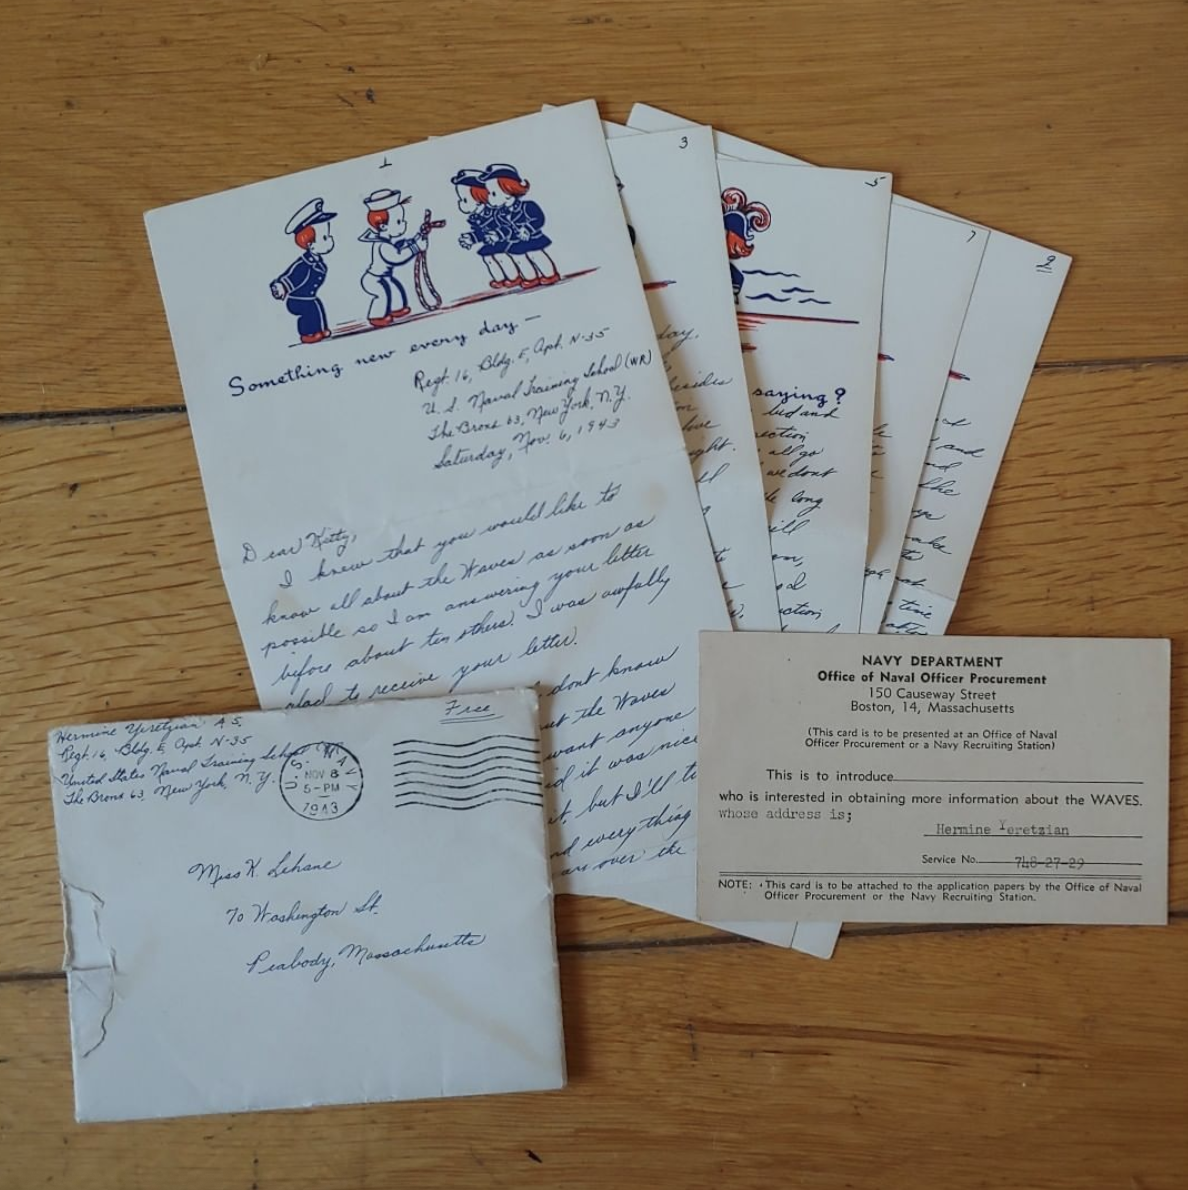 1
Something new every day —
Regt. 16, Bldg. E, Apt. N-35
U. S. Naval Training School (WR)
The Bronx 63, New York, N.Y.
Saturday, Nov. 6, 1943
Dear Kitty,
I knew that you would like to
know all about the Waves as soon as
possible so I am answering your letter
before about ten others. I was awfully
glad to receive your letter.
dont know
the Waves
want anyone
it was nice
but I'll
everything
over the
3
day,
besides
love
5
saying?
bed and
all go
we dont
long
7
9
and
the
time
Hermine Yeretzian A.S.
Regt. 16, Bldg. E, Apt. N-35
United States Naval Training School (WR)
The Bronx 63, New York, N.Y.
Free
U.S. NAVY
NOV 8
5-PM
1943
Miss K. Lehane
70 Washington St.
Peabody, Massachusetts
NAVY DEPARTMENT
Office of Naval Officer Procurement
150 Causeway Street
Boston, 14, Massachusetts
(This card is to be presented at an Office of Naval
Officer Procurement or a Navy Recruiting Station)
This is to introduce
who is interested in obtaining more information about the WAVES.
whose address is;
Hermine Yeretzian
Service No. 748-27-29
NOTE: This card is to be attached to the application papers by the Office of Naval
Officer Procurement or the Navy Recruiting Station.